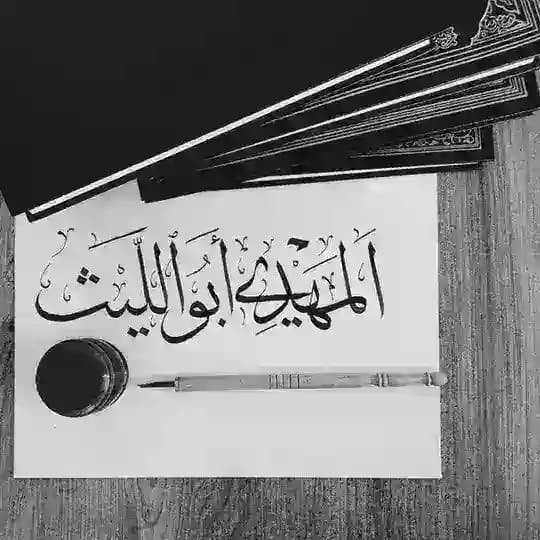 المَهْدِي أَبُو اللَّيث